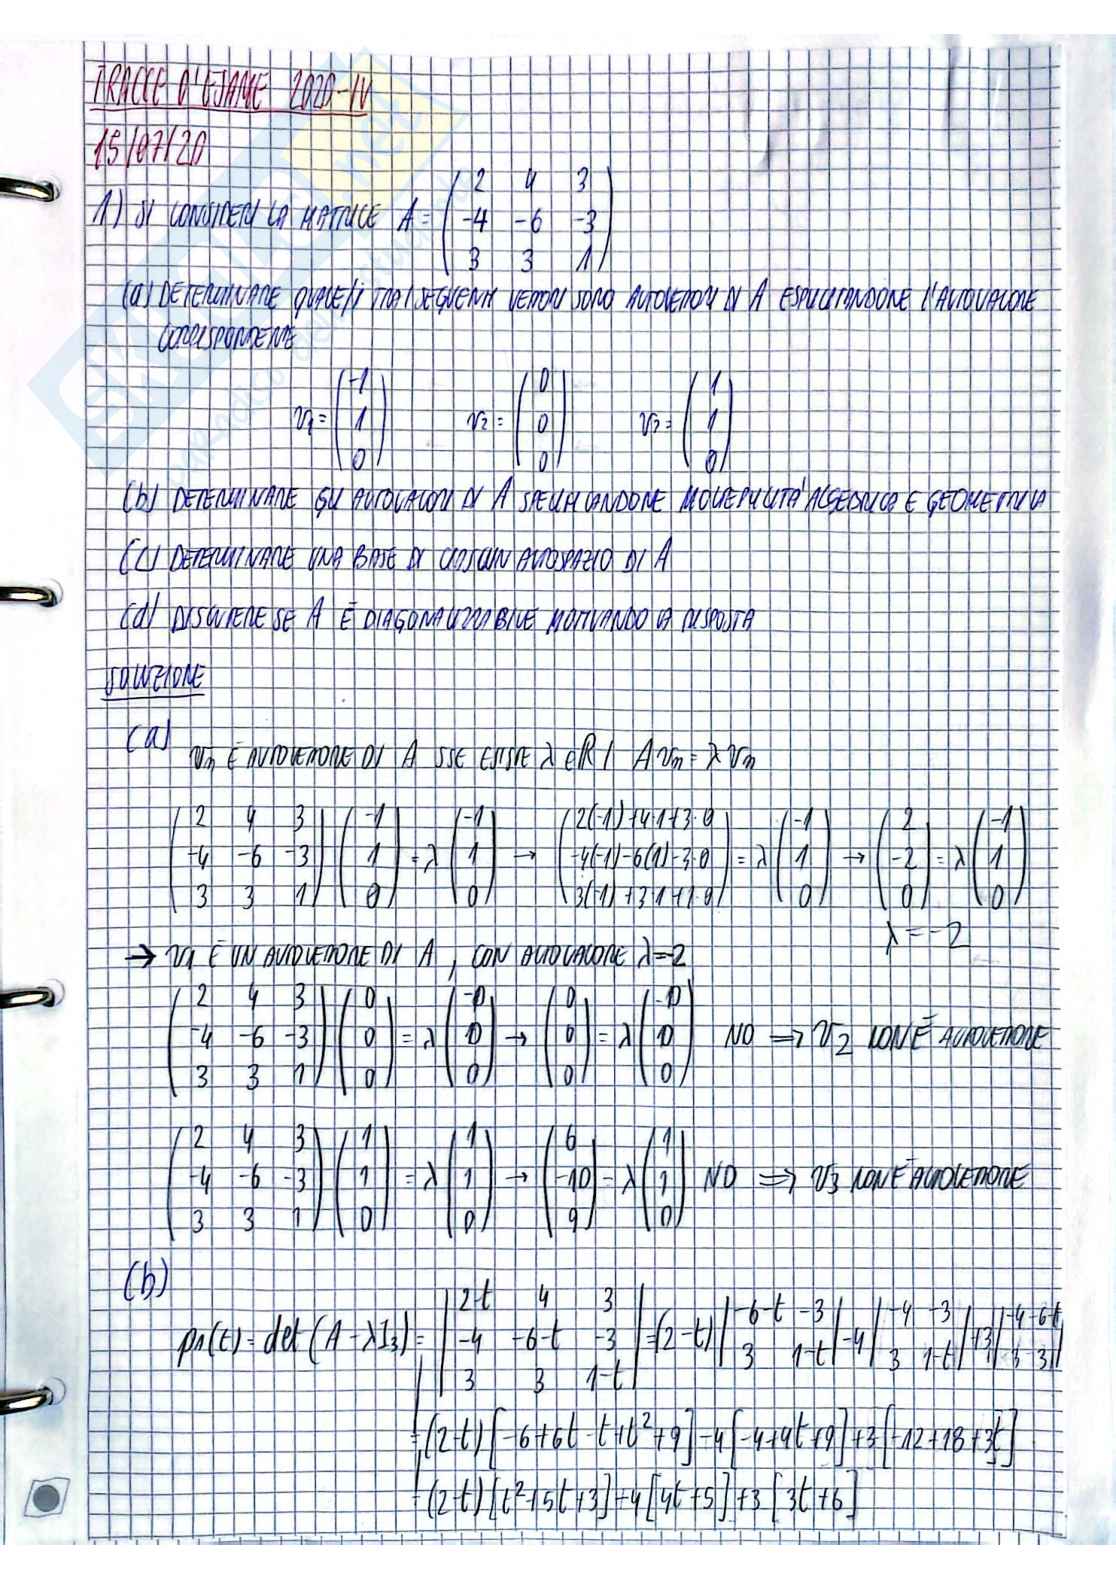 TRACCE D'ESAME 2020-IV
15/07/20
1) SI CONSIDERI LA MATRICE A = ( 2 4 3
-4 -6 -3
3 3 1 )
(a) DETERMINARE QUALE/I TRA I SEGUENTI VETTORI SONO AUTOVETTORI DI A ESPLICITANDONE L'AUTOVALORE
CORRISPONDENTE
v1 = ( -1 1 0 ) v2 = ( 0 0 0 ) v3 = ( 1 1 0 )
(b) DETERMINARE GLI AUTOVALORI DI A SPECIFICANDONE MOLTEPLICITÀ ALGEBRICA E GEOMETRICA
(c) DETERMINARE UNA BASE DI CIASCUN AUTOSPAZIO DI A
(d) DISCUTERE SE A È DIAGONALIZZABILE MOTIVANDO LA RISPOSTA
SOLUZIONE
(a) vn È AUTOVETTORE DI A SSE ESISTE λ ∈ R | A vn = λ vn
( 2 4 3 ) ( -1 ) = λ ( -1 ) → ( 2(-1)+4·1+3·0 ) = λ ( -1 ) → ( 2 ) = λ ( -1 )
( -4 -6 -3 ) ( 1 ) ( 1 ) ( -4(-1)-6(1)-3·0 ) ( 1 ) ( -2 ) ( 1 )
( 3 3 1 ) ( 0 ) ( 0 ) ( 3(-1)+3·1+1·0 ) ( 0 ) ( 0 ) ( 0 )
λ = -2
→ v1 È UN AUTOVETTORE DI A, CON AUTOVALORE λ=-2
( 2 4 3 ) ( 0 ) = λ ( 0 ) → ( 0 ) = λ ( 0 )
( -4 -6 -3 ) ( 0 ) ( 0 ) ( 0 ) ( 0 ) NO ⟹ v2 NON È AUTOVETTORE
( 3 3 1 ) ( 0 ) ( 0 ) ( 0 ) ( 0 )
( 2 4 3 ) ( 1 ) = λ ( 1 ) → ( 6 ) = λ ( 1 )
( -4 -6 -3 ) ( 1 ) ( 1 ) ( -10 ) ( 1 ) NO ⟹ v3 NON È AUTOVETTORE
( 3 3 1 ) ( 0 ) ( 0 ) ( 9 ) ( 0 )
(b)
pA(t) = det(A - λI3) = | 2-t 4 3 | = (2-t) | -6-t -3 | -4 | -4 -3 | +3 | -4 -6-t |
| -4 -6-t -3 | | 3 1-t | | 3 1-t | | 3 3 |
| 3 3 1-t |
= (2-t)[-6+6t-t+t²+9]-4[-4+4t+9]+3[-12+18+3t]
= (2-t)[t²+5t+3]-4[4t+5]+3[3t+6]